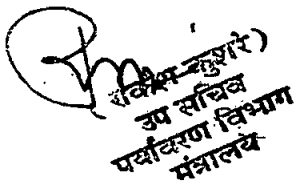 कुशरे)
उप सचिव
पर्यावरण विभाग
मंत्रालय